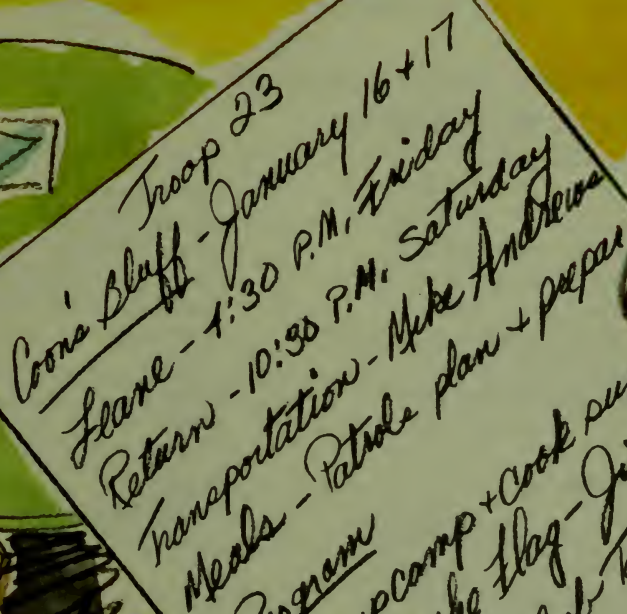 Troop 23
Coon's Bluff - January 16 + 17
Leave - 4:30 P.M. Friday
Return - 10:30 P.M. Saturday
Transportation - Mike Andrews
Meals - Patrols plan + prepar
Program
camp + Cook su
Flag - Ji